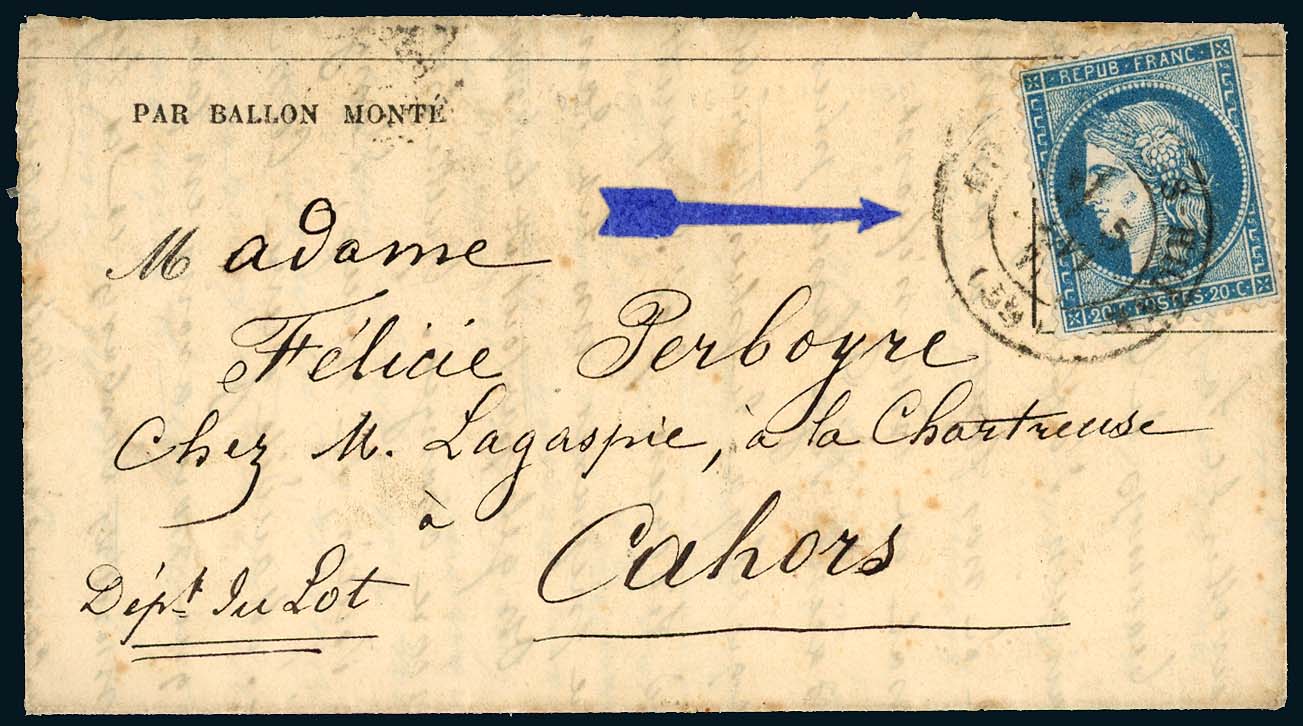 PAR BALLON MONTÉ
REPUB·FRANC·
20·C·POSTES·20·C·
(35)
Madame
Félicie Perboyre
Chez M. Lagaspie, à la Chartreuse
à
Cahors
Dépt du Lot